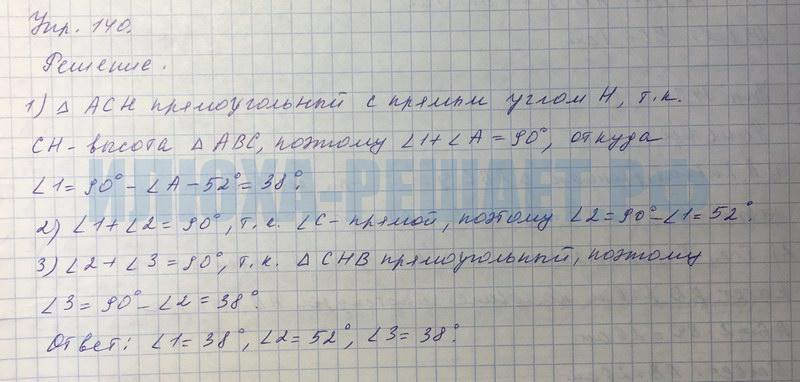 Упр. 140.
Решение.
1) △ ACH прямоугольный с прямым углом H, т.к.
CH - высота △ ABC, поэтому ∠1+∠A = 90°, откуда
∠1 = 90° - ∠A - 52° = 38°.
2) ∠1+∠2 = 90°, т.к. ∠C - прямой, поэтому ∠2 = 90° - ∠1 = 52°.
3) ∠2 + ∠3 = 90°, т.к. △ CHB прямоугольный, поэтому
∠3 = 90° - ∠2 = 38°.
Ответ: ∠1 = 38°, ∠2 = 52°, ∠3 = 38°.
ИЛЮХА-РЕШАЕТ.РФ